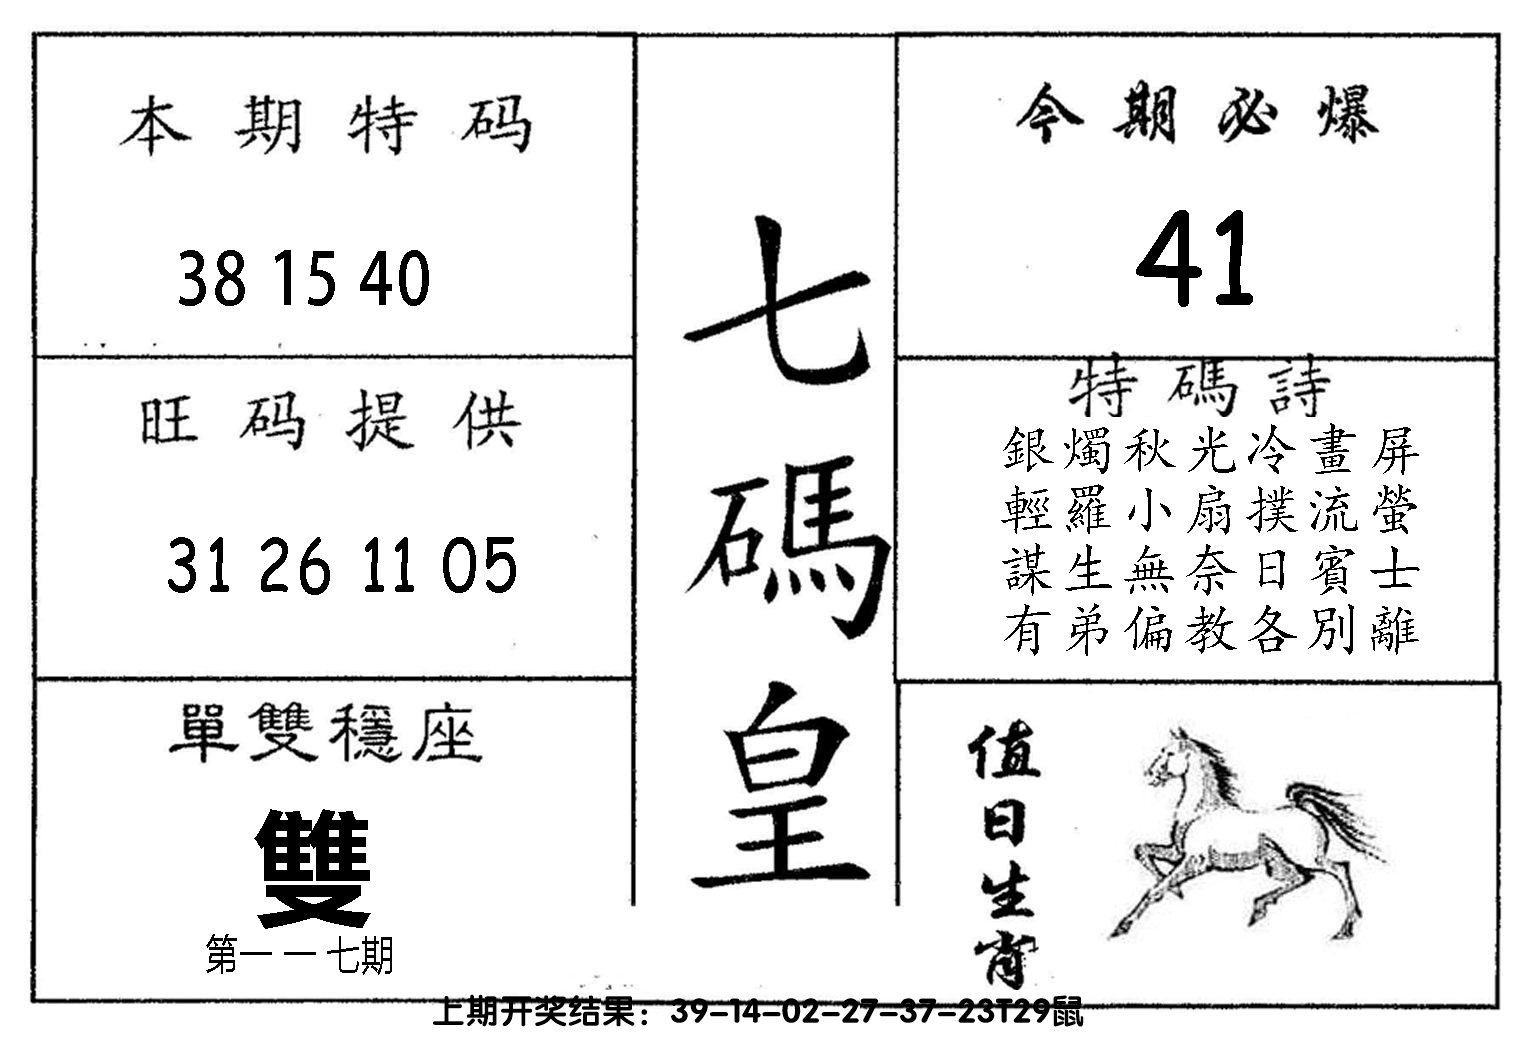 本期特码
38 15 40
旺码提供
31 26 11 05
單雙穩座
雙
第一一七期
七碼皇
今期必爆
41
特碼詩
銀燭秋光冷畫屏
輕羅小扇撲流螢
謀生無奈日賓士
有弟偏教各別離
值日生肖
上期开奖结果：39-14-02-27-37-23T29鼠